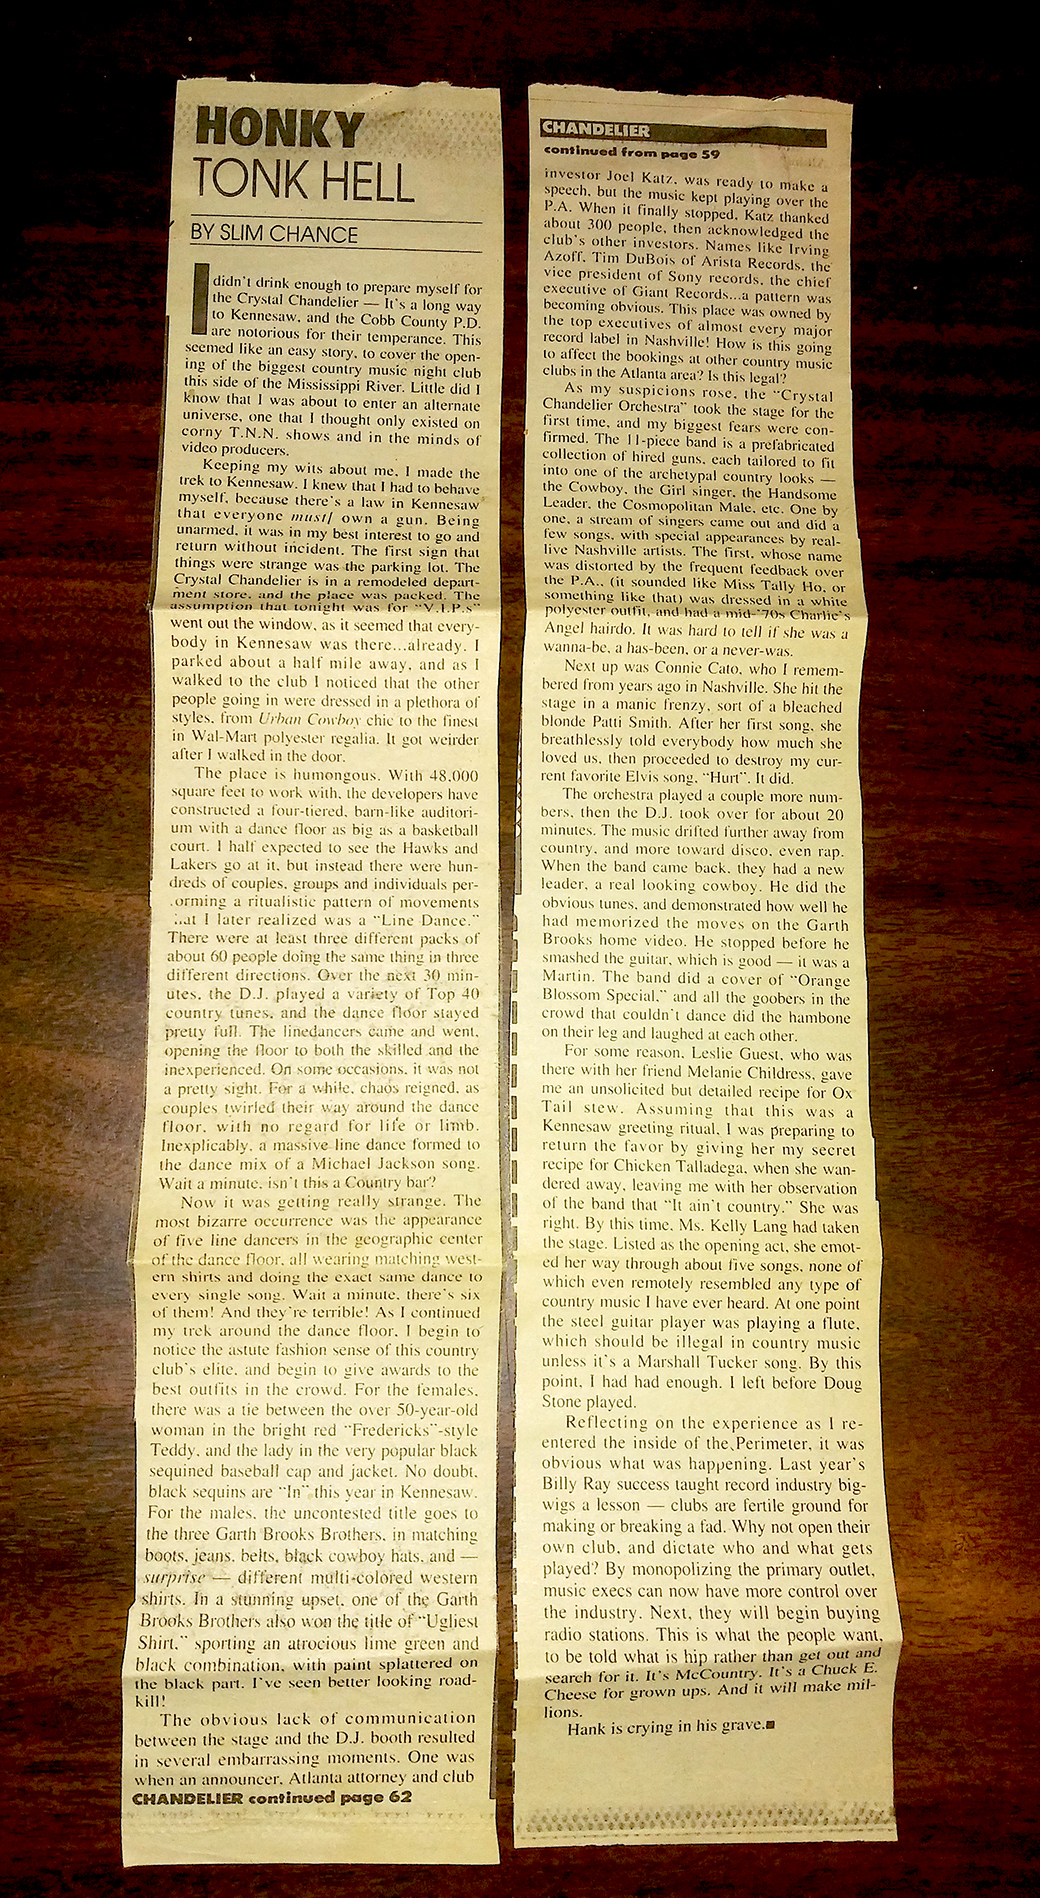 HONKY
TONK HELL
BY SLIM CHANCE
I didn't drink enough to prepare myself for
the Crystal Chandelier — It's a long way
to Kennesaw, and the Cobb County P.D.
are notorious for their temperance. This
seemed like an easy story, to cover the open-
ing of the biggest country music night club
this side of the Mississippi River. Little did I
know that I was about to enter an alternate
universe, one that I thought only existed on
corny T.N.N. shows and in the minds of
video producers.
Keeping my wits about me, I made the
trek to Kennesaw. I knew that I had to behave
myself, because there's a law in Kennesaw
that everyone must/ own a gun. Being
unarmed, it was in my best interest to go and
return without incident. The first sign that
things were strange was the parking lot. The
Crystal Chandelier is in a remodeled depart-
ment store, and the place was packed. The
assumption that tonight was for "V.I.P.s"
went out the window, as it seemed that every-
body in Kennesaw was there...already. I
parked about a half mile away, and as I
walked to the club I noticed that the other
people going in were dressed in a plethora of
styles, from Urban Cowboy chic to the finest
in Wal-Mart polyester regalia. It got weirder
after I walked in the door.
The place is humongous. With 48,000
square feet to work with, the developers have
constructed a four-tiered, barn-like auditori-
um with a dance floor as big as a basketball
court. I half expected to see the Hawks and
Lakers go at it, but instead there were hun-
dreds of couples, groups and individuals per-
orming a ritualistic pattern of movements
at I later realized was a "Line Dance."
There were at least three different packs of
about 60 people doing the same thing in three
different directions. Over the next 30 min-
utes, the D.J. played a variety of Top 40
country tunes, and the dance floor stayed
pretty full. The linedancers came and went,
opening the floor to both the skilled and the
inexperienced. On some occasions, it was not
a pretty sight. For a while, chaos reigned, as
couples twirled their way around the dance
floor, with no regard for life or limb.
Inexplicably, a massive line dance formed to
the dance mix of a Michael Jackson song.
Wait a minute, isn't this a Country bar?
Now it was getting really strange. The
most bizarre occurrence was the appearance
of five line dancers in the geographic center
of the dance floor, all wearing matching west-
ern shirts and doing the exact same dance to
every single song. Wait a minute, there's six
of them! And they're terrible! As I continued
my trek around the dance floor, I begin to
notice the astute fashion sense of this country
club's elite, and begin to give awards to the
best outfits in the crowd. For the females,
there was a tie between the over 50-year-old
woman in the bright red "Fredericks"-style
Teddy, and the lady in the very popular black
sequined baseball cap and jacket. No doubt,
black sequins are "In" this year in Kennesaw.
For the males, the uncontested title goes to
the three Garth Brooks Brothers, in matching
boots, jeans, belts, black cowboy hats, and —
surprise — different multi-colored western
shirts. In a stunning upset, one of the Garth
Brooks Brothers also won the title of "Ugliest
Shirt," sporting an atrocious lime green and
black combination, with paint splattered on
the black part. I've seen better looking road-
kill!
The obvious lack of communication
between the stage and the D.J. booth resulted
in several embarrassing moments. One was
when an announcer, Atlanta attorney and club
CHANDELIER continued page 62
CHANDELIER
continued from page 59
investor Joel Katz, was ready to make a
speech, but the music kept playing over the
P.A. When it finally stopped, Katz thanked
about 300 people, then acknowledged the
club's other investors. Names like Irving
Azoff, Tim DuBois of Arista Records, the
vice president of Sony records, the chief
executive of Giant Records...a pattern was
becoming obvious. This place was owned by
the top executives of almost every major
record label in Nashville! How is this going
to affect the bookings at other country music
clubs in the Atlanta area? Is this legal?
As my suspicions rose, the "Crystal
Chandelier Orchestra" took the stage for the
first time, and my biggest fears were con-
firmed. The 11-piece band is a prefabricated
collection of hired guns, each tailored to fit
into one of the archetypal country looks —
the Cowboy, the Girl singer, the Handsome
Leader, the Cosmopolitan Male, etc. One by
one, a stream of singers came out and did a
few songs, with special appearances by real-
live Nashville artists. The first, whose name
was distorted by the frequent feedback over
the P.A., (it sounded like Miss Tally Ho, or
something like that) was dressed in a white
polyester outfit, and had a mid-'70s Charlie's
Angel hairdo. It was hard to tell if she was a
wanna-be, a has-been, or a never-was.
Next up was Connie Cato, who I remem-
bered from years ago in Nashville. She hit the
stage in a manic frenzy, sort of a bleached
blonde Patti Smith. After her first song, she
breathlessly told everybody how much she
loved us, then proceeded to destroy my cur-
rent favorite Elvis song, "Hurt". It did.
The orchestra played a couple more num-
bers, then the D.J. took over for about 20
minutes. The music drifted further away from
country, and more toward disco, even rap.
When the band came back, they had a new
leader, a real looking cowboy. He did the
obvious tunes, and demonstrated how well he
had memorized the moves on the Garth
Brooks home video. He stopped before he
smashed the guitar, which is good — it was a
Martin. The band did a cover of "Orange
Blossom Special," and all the goobers in the
crowd that couldn't dance did the hambone
on their leg and laughed at each other.
For some reason, Leslie Guest, who was
there with her friend Melanie Childress, gave
me an unsolicited but detailed recipe for Ox
Tail stew. Assuming that this was a
Kennesaw greeting ritual, I was preparing to
return the favor by giving her my secret
recipe for Chicken Talladega, when she wan-
dered away, leaving me with her observation
of the band that "It ain't country." She was
right. By this time, Ms. Kelly Lang had taken
the stage. Listed as the opening act, she emot-
ed her way through about five songs, none of
which even remotely resembled any type of
country music I have ever heard. At one point
the steel guitar player was playing a flute,
which should be illegal in country music
unless it's a Marshall Tucker song. By this
point, I had had enough. I left before Doug
Stone played.
Reflecting on the experience as I re-
entered the inside of the Perimeter, it was
obvious what was happening. Last year's
Billy Ray success taught record industry big-
wigs a lesson — clubs are fertile ground for
making or breaking a fad. Why not open their
own club, and dictate who and what gets
played? By monopolizing the primary outlet,
music execs can now have more control over
the industry. Next, they will begin buying
radio stations. This is what the people want,
to be told what is hip rather than get out and
search for it. It's McCountry. It's a Chuck E.
Cheese for grown ups. And it will make mil-
lions.
Hank is crying in his grave.■